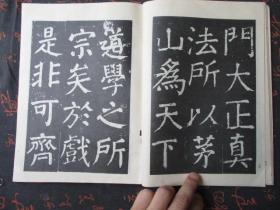 門大正真
法所以茅
山為天下
道學之所
宗矣於戲
是非可齊